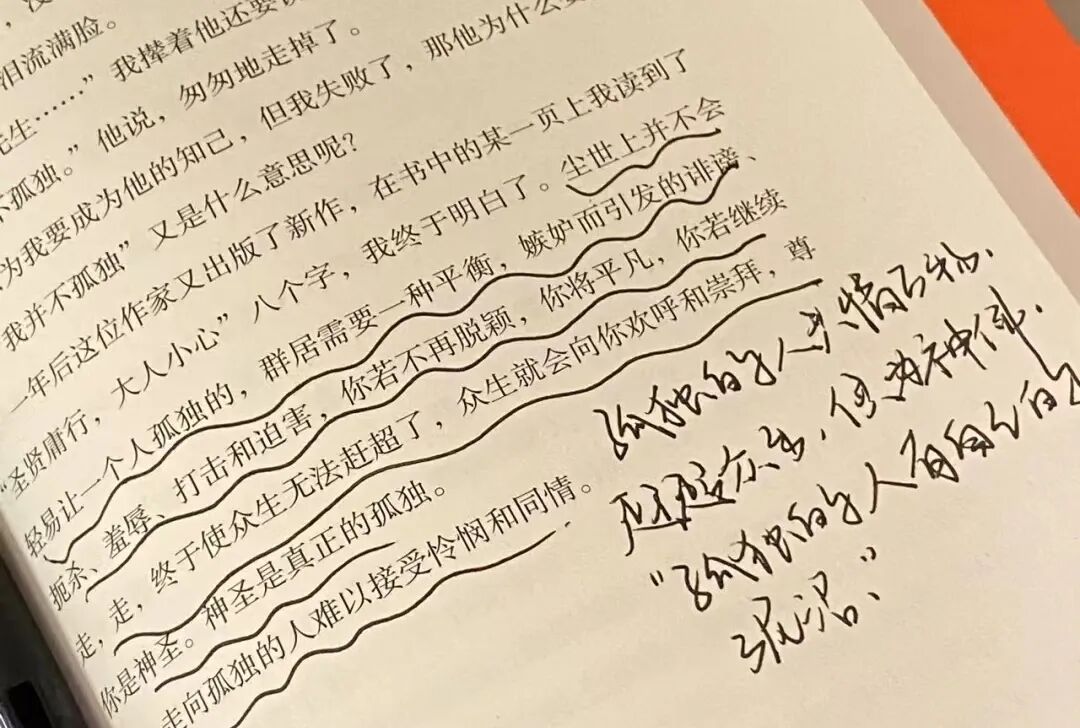 泪流满脸。
先生……”我撵着他还要
不孤独。”他说，匆匆地走掉了。
为我要成为他的知己，但我失败了，那他为什么要
我并不孤独”又是什么意思呢？
一年后这位作家又出版了新作，在书中的某一页上我读到了
“圣贤庸行，大人小心”八个字，我终于明白了。尘世上并不会
轻易让一个人孤独的，群居需要一种平衡，嫉妒而引发的诽谤、
扼杀、羞辱、打击和迫害，你若不再脱颖，你将平凡，你若继续
走，走，终于使众生无法赶超了，众生就会向你欢呼和崇拜，尊
你是神圣。神圣是真正的孤独。
走向孤独的人难以接受怜悯和同情。
孤独的人
“孤独的人有自己的
泥沼”